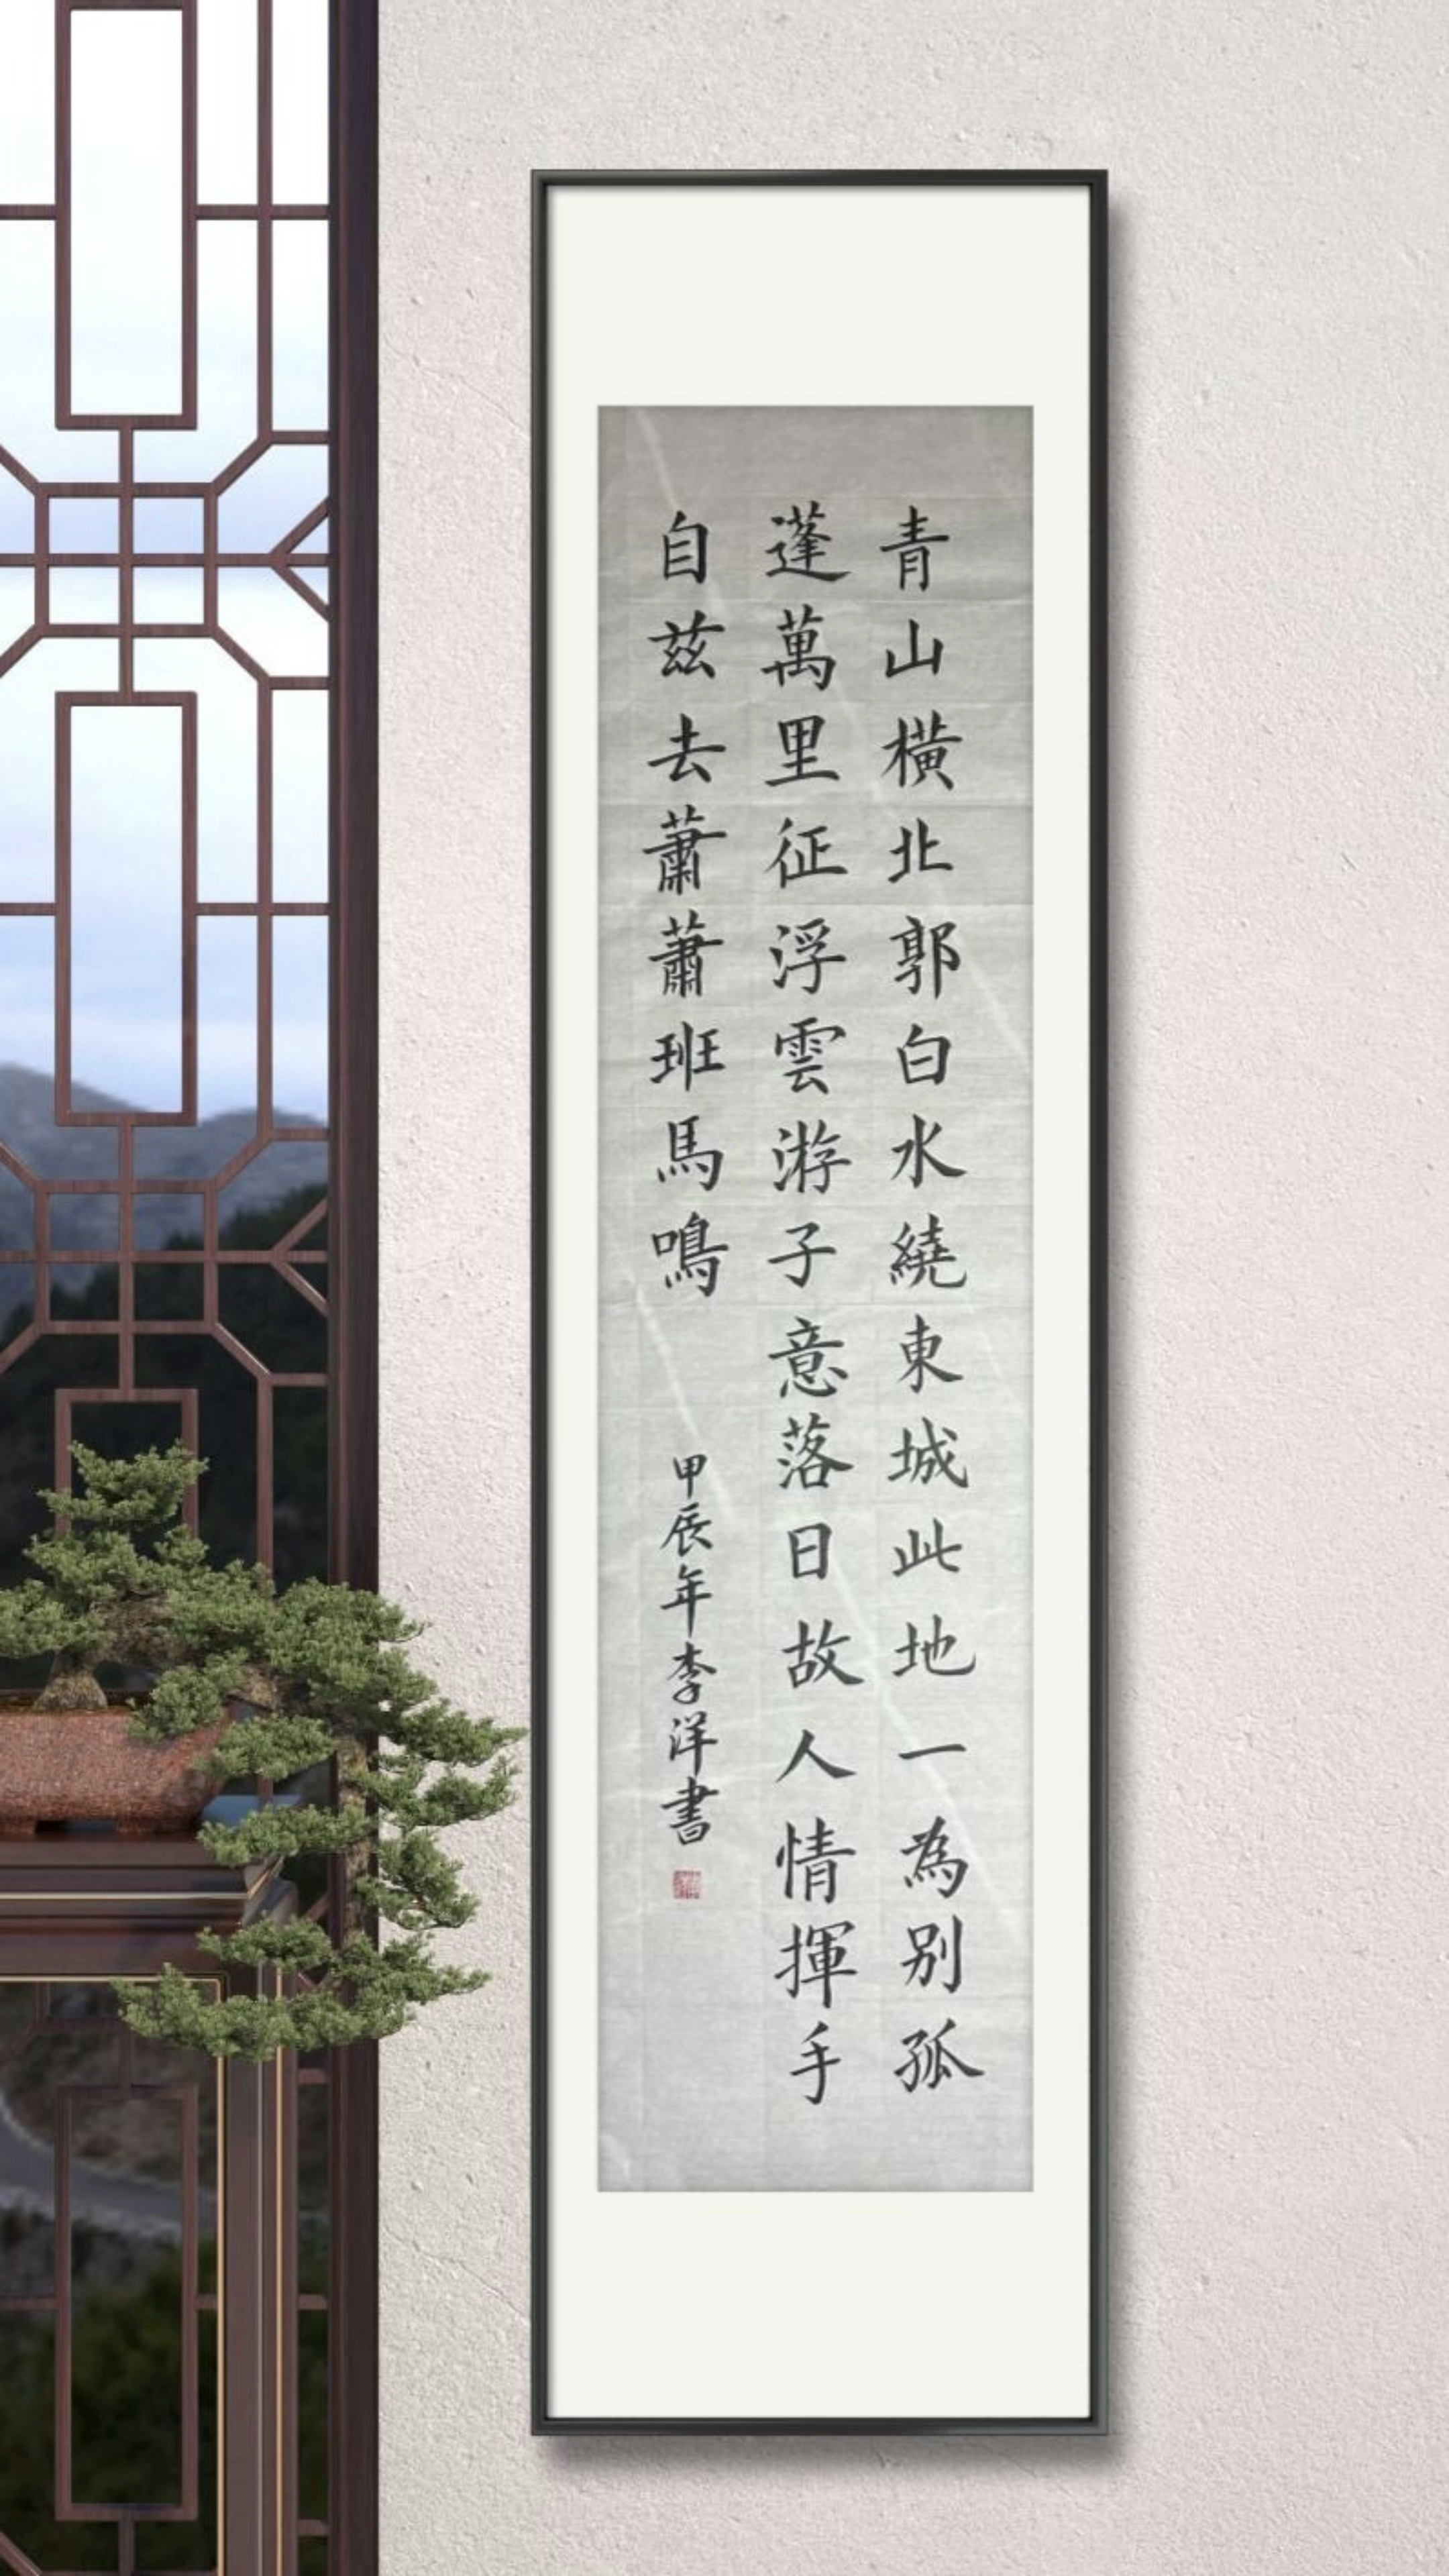 青山橫北郭白水繞東城此地一為別孤
蓬萬里征浮雲游子意落日故人情揮手
自茲去蕭蕭班馬鳴
甲辰年李洋書